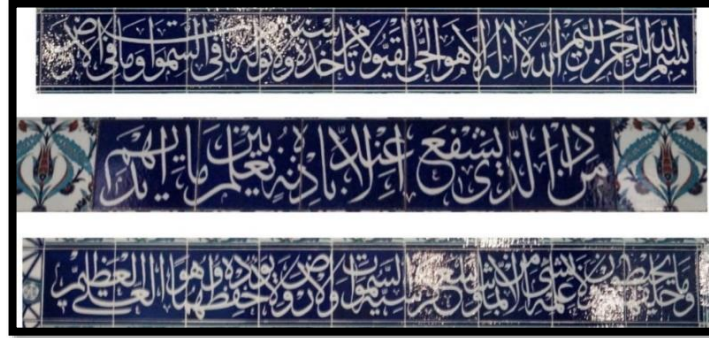 بسم الله الرحمن الرحيم الله لا اله الا هو الحي القيوم لا تأخذه سنة ولا نوم له ما في السموات وما في الارض
من ذا الذي يشفع عنده الا باذنه يعلم ما بين ايديهم
وما خلفهم ولا يحيطون بشيء من علمه الا بما شاء وسع كرسيه السموات والارض ولا يؤده حفظهما وهو العلي العظيم